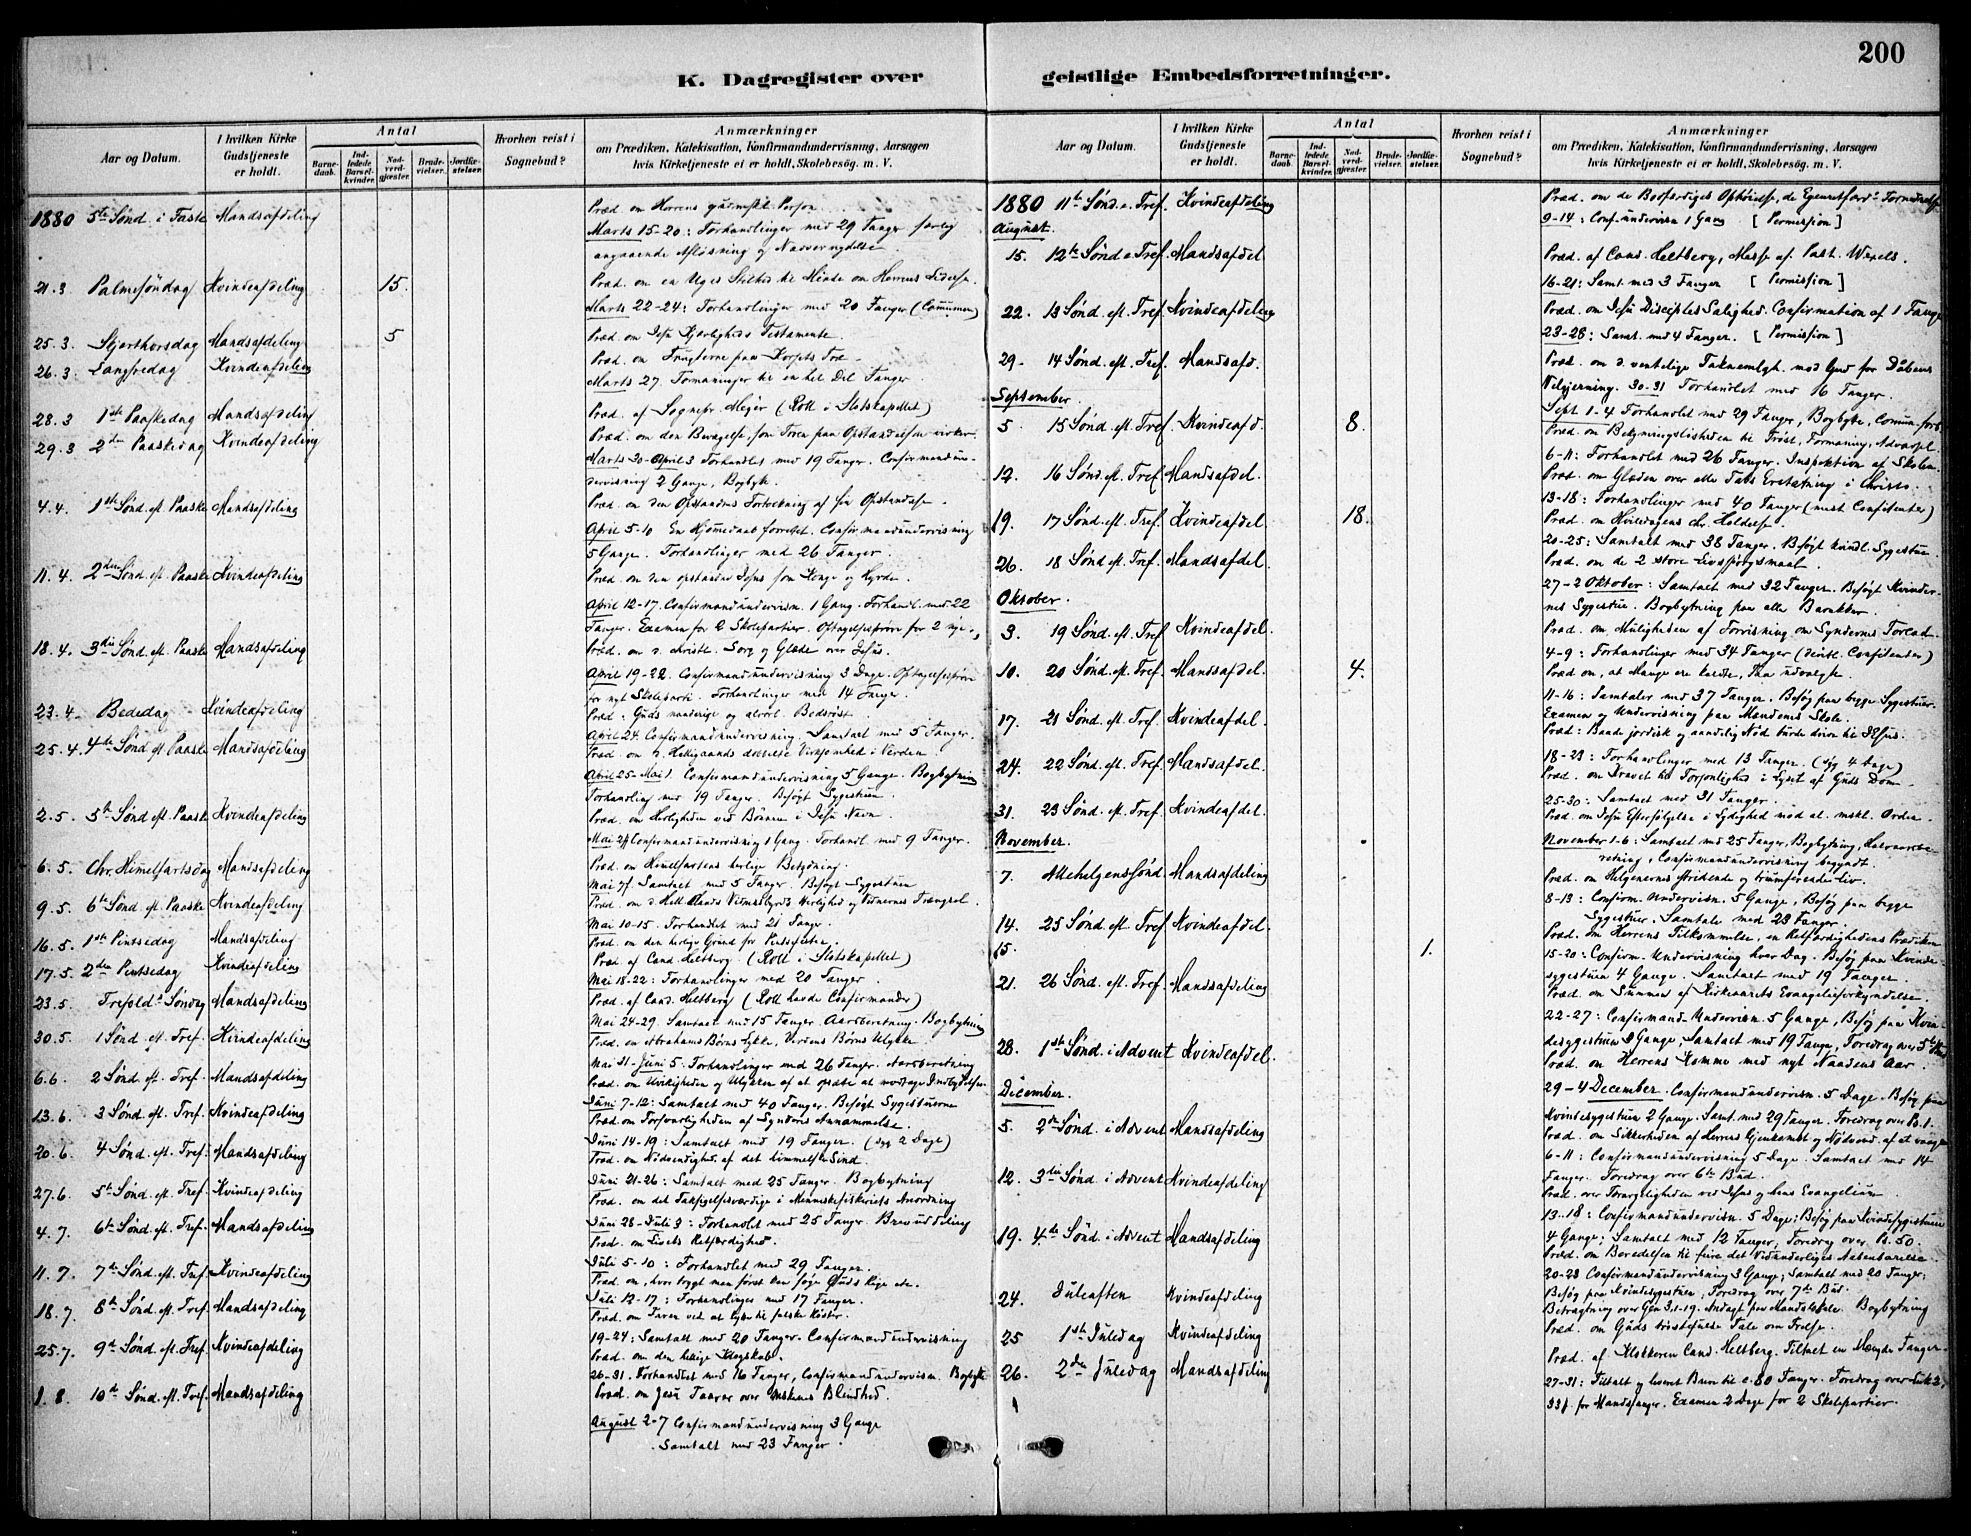 200
K. Dagregister over geistlige Embedsforretninger.
Aar og Datum.
I hvilken Kirke Gudstjeneste er holdt.
Antal
Barne-daab.
Ind-ledede Barsel-kvinder.
Nad-verd-gjæster.
Brude-vielser.
Jordfæ-stelser.
Hvorhen reist i Sognebud?
Anmærkninger
om Prædiken, Katekisation, Konfirmandundervisning, Aarsagen
hvis Kirketjeneste ei er holdt, Skolebesøg. m. V.
1880 5te Sønd. i Faste Mandsafdeling
Præd. om Herrens Person
Marts 15-20: Forhandlinger med 29 Fanger særlig
angaaende Afløsning og Nadvernydelse.
21.3 Palmesøndag Kvindeafdeling 15.
Præd. om en Uges Stilhed til Minde om Herrens Lidelse.
Marts 22-24: Forhandlinger med 20 Fanger (Communion)
25.3. Skjærthorsdag Mandsafdeling 5
Præd. om Jesu Kjærligheds Testamente.
26.3 Langfredag Kvindeafdeling
Præd. om Frugterne paa Korsets Træ.
Marts 27. Formaninger til en hel Del Fanger.
28.3 1ste Paaskedag Mandsafdeling
Præd. af Sognepr. Mejer (Roll i Slotskapellet)
29.3 2den Paaskedag Kvindeafdeling
Præd. om den Bevægelse, som Troen paa Opstandelsen virker.
Marts 30-April 3 Forhandlet med 19 Fanger. Confirmandun-
dervisning 2 Gange, Bogbytt.
4.4. 1ste Sønd. eft. Paaske Mandsafdeling
Præd. om den Opstandnes Forvekning af sin Opstandelse.
April 5-10 En Hjemmedaab forrettet. Confirmandundervisning
5 Gange. Forhandlinger med 26 Fanger.
11.4. 2den Sønd. eft. Paaske Kvindeafdeling
Præd. om den opstandne Jesus som Konge og Hyrde.
April 12-17. Confirmandundervisn. 1 Gang. Forhandl. med 22
Fanger. Examen for 2 Skolepartier. Optagelsesprøve for 2 nye.
18.4. 3die Sønd. eft. Paaske Mandsafdeling
Præd. om d. christl. Sorg og Glæde over Jesus.
April 19-22. Confirmandundervisning 3 Dage. Optagelsesprøve
for nyt Skoleparti. Forhandlinger med 14 Fanger.
23.4. Bededag Kvindeafdeling
Præd.: Guds naaderige og alvorl. Bodsrøst.
April 24. Confirmandundervisning. Samtalt med 5 Fanger.
25.4. 4de Sønd. eft. Paaske Mandsafdeling
Præd. om d. Helligaands Virksomhed i Verden.
April 25-Mai 1. Confirmandundervisning 5 Gange. Bogbytning
Forhandling med 19 Fanger. Besøgt Sygestuen.
2.5. 5te Sønd. eft. Paaske Kvindeafdeling
Præd. om Herligheden ved Bønnen i Jesu Navn.
Confirmandundervisning 1 Gang. Forhandl. med 9 Fanger.
6.5. Chr. Himmelfartsdag Mandsafdeling
Præd. om Himmelfartens herlige Betydning.
Mai 7f. Samtalt med 5 Fanger. Besøgt Sygestuen
9.5. 6te Sønd. eft. Paaske Kvindeafdeling
Præd. om d. Hell. Aands Vidnesbyrds Herlighed og Vidnernes Trængsel.
Mai 10-15. Forhandlet med 21 Fanger.
16.5. 1ste Pintsedag Mandsafdeling
Præd. om den herlige Grund for Pintsefesten.
17.5. 2den Pintsedag Kvindeafdeling
Præd. af Cand. Heltberg. (Roll i Slotskapellet)
Mai 18-22: Forhandlinger med 20 Fanger.
23.5. Trefold.s Søndag Mandsafdeling
Præd. af Cand. Heltberg (Roll havde Confirmander)
Mai 24-29. Samtalt med 15 Fanger. Aarsberetning. Bogbytning
30.5. 1 Sønd. eft. Tref. Kvindeafdeling
Præd. om Abrahams Børns Lykke, Verdens Børns Ulykke.
Mai 31-Juni 5. Forhandlinger med 26 Fanger. Aarsberetning
6.6. 2 Sønd. eft. Tref. Mandsafdeling
Præd. om Uvikigheden og Ulykken af at opsætte at modtage Indbydelsen.
Juni 7-12: Samtalt med 40 Fanger. Besøgt Sygestuerne
13.6. 3 Sønd. eft. Tref. Kvindeafdeling
Præd. om Forsonligheden af Synderes Annammelse.
Juni 14-19: Samtalt med 19 Fanger. (syg 2 Dage)
20.6. 4 Sønd. eft. Tref. Mandsafdeling
Præd. om Nødvendighed. af det himmelske Sind.
Juni 21-26: Samtalt med 25 Fanger. Bogbytning
27.6. 5te Sønd. eft. Tref. Kvindeafdeling
Præd. om det Takksigelsesværdige i Menneskefiskeriets Anordning
Juni 28-Juli 3: Forhandlet med 25 Fanger. Brevuddeling
4.7. 6te Sønd. eft. Tref. Mandsafdeling
Præd. om Livets Retfærdighed.
Juli 5-10: Forhandlet med 29 Fanger.
11.7. 7de Sønd. eft. Tref. Kvindeafdeling
Præd. om, hvor trygt man først kan søge Guds Rige etc.
Juli 12-17: Forhandlinger med 17 Fanger.
18.7. 8de Sønd. eft. Tref. Mandsafdeling
Præd. om Faren ved at lytte til falske Røster.
19-24: Samtalt med 20 Fanger. Confirmandundervisning
25.7. 9de Sønd. eft. Tref. Kvindeafdeling
Præd. om den hellige Klogskab.
26-31. Forhandlet med 16 Fanger, Confirmandundervisn. Bogbytte
1.8. 10de Sønd. eft. Tref. Mandsafdeling
Præd. om Jesu Taarer over Blindhed.
August 2-7 Confirmandundervisning 3 Gange
Samtalt med 23 Fanger.
Aar og Datum.
I hvilken Kirke Gudstjeneste er holdt.
Antal
Barne-daab.
Ind-ledede Barsel-kvinder.
Nad-verd-gjæster.
Brude-vielser.
Jordfæ-stelser.
Hvorhen reist i Sognebud?
Anmærkninger
om Prædiken, Katekisation, Konfirmandundervisning, Aarsagen
hvis Kirketjeneste ei er holdt, Skolebesøg. m. V.
1880 11te Sønd. e. Tref. Kvindeafdeling
Præd. om de Bodfærdiges Ophøielse, de Fornedrelse
August.
9-14: Conf.undervisn 1 Gang [Permission]
15. 12te Sønd. e. Tref. Mandsafdel.
Præd. af Cand. Heltberg, Messe af Past. Wexels.
16-21: Samt. med 3 Fanger [Permission]
22. 13 Sønd. eft. Tref. Kvindeafdeling
Præd. om Jesu Disciples Salighed. Confirmation af 1 Fange
23-28: Samt. med 4 Fanger. [Permission]
29. 14 Sønd. eft. Tref. Mandsafd.
Præd. om d. Taknemligh. mod Gud for Daabens
Velgjerning. 30-31 Forhandlet med 16 Fanger.
September.
Sept. 1-4 Forhandlet med 29 Fanger, Bogbytte,
5. 15 Sønd. eft. Tref. Kvindeafd. 8.
Præd. om Bekymringsløsheden til Trøst, Formaning, Advarsel.
6-11: Forhandlet med 26 Fanger. Inspektion af Skolen.
12. 16 Sønd. eft. Tref. Mandsafdel.
Præd. om Glæden over alle Tabs Erstatning i Christo.
13-18: Forhandlinger med 40 Fanger (mest Confitenter)
19. 17 Sønd. eft. Tref. Kvindeafdel. 18.
Præd. om Hviledagens chr. Holdelse.
20-25: Samtalt med 38 Fanger. Besøgt kvindl. Sygestue.
26. 18 Sønd. eft. Tref. Mandsafdel.
Præd. om de 2 store Livsspørgsmaal.
27-2 Oktober: Samtalt med 32 Fanger. Besøgt Kvinder-
nes Sygestue. Bogbytning paa alle Barakker.
Oktober.
3. 19 Sønd. eft. Tref. Kvindeafdel.
Præd. om Muligheden af Forvisning om Syndernes Forlad.
4-9: Forhandlinger med 34 Fanger
10. 20 Sønd. eft. Tref. Mandsafdel. 4.
Præd. om, at Mange ere kaldte, Faa udvalgte.
11-16: Samtaler med 37 Fanger. Besøg paa begge Sygestuer.
Examen og Undervisning paa Mandenes Skole.
17. 21 Sønd. eft. Tref. Kvindeafdel.
Præd.: Baade jordisk og aandelig Nød burde drive til Jesus.
18-23: Forhandlinger med 13 Fanger. (syg 4 Dage)
24. 22 Sønd. eft. Tref. Mandsafdel.
Præd. om Kravet til Forsonlighed i Lyset af Guds Dom.
25-30: Samtalt med 31 Fanger.
31. 23 Sønd. eft. Tref. Kvindeafdel.
Præd. om Jesu Efterfølgelse i Lydighed mod al mskl. Orden.
November.
November 1-6: Samtalt med 25 Fanger, Bogbytning,
Confirmandundervisning begyndt.
7. Allehelgenssønd. Mandsafdeling
Præd. om Helgenernes stridende og triumferende Liv.
8-13: Confirm. Undervisn. 5 Gange, Besøg paa begge
Sygestuer. Samtale med 23 Fanger.
14. 25 Sønd. eft. Tref. Kvindeafdel.
Præd. om Herrens Tilkommelse, en Retfærdighedens Prædiken
15. 1.
15-20: Confirm. Undervisning hver Dag. Besøg paa Kvinde-
sygestuen 4 Gange. Samtalt med 19 Fanger.
21. 26 Sønd. eft. Tref. Mandsafdeling
Præd. om Summen af Kirkeaarets Evangelieforkyndelse.
22-27: Confirmand-Undervisn. 5 Gange, Besøg paa Kvin-
desygestuen 2 Gange; Samtalt med 19 Fanger, Foredrag over 5te Bud
28. 1ste Sønd. i Advent Kvindeafdel.
Præd. om Herrens Komme med nyt Naadens Aar.
December.
29-4 December. Confirmandundervisn. 5 Dage. Besøg paa
Kvindesygestuen 2 Gange. Samt. med 29 Fanger. Foredrag over Ps. 1.
5. 2den Sønd. i Advent Mandsafdeling
Præd. om Sikkerheden af Herrens Gjenkomst og Nødvend. af at vaage
6-11: Confirmandundervisning 5 Dage. Samtalt med 14
Fanger. Foredrag over 6te Bud.
12. 3die Sønd. i Advent Kvindeafdeling
Præd. over Forargeligheden ved Jesus og hans Evangelium.
13-18: Confirmandundervisn. 5 Dage; Besøg paa Kvindesygestuen
4 Gange; Samtalt med 12 Fanger; Foredrag over Ps. 50.
19. 4de Sønd. i Advent Mandsafdeling
Præd. om Beredelsen til feire det Vidunderliges Aabenbarelse
20-23 Confirmandundervisning 3 Gange; Samtalt med 20 Fanger;
Besøg paa Kvindesygestuen, Foredrag over 7de Bud.
24. Juleaften Kvindeafdeling
Betragtning over Gen 3,1-19. Andagt paa Mandsskole. Bogbytning
25 1ste Juledag Kvindeafdeling
Præd. om Guds trøstefulde Tale om Frelse.
26. 2den Juledag Mandsafdeling
Præd. af Klokkeren Cand. Heltberg. Tiltalt en Mængde Fanger.
27-31: Tiltalt og levert Breve til c. 80 Fanger. Foredrag over Luk 2,
33f. for Mandsfanger. Examen 2 Dage for 2 Skolepartier.